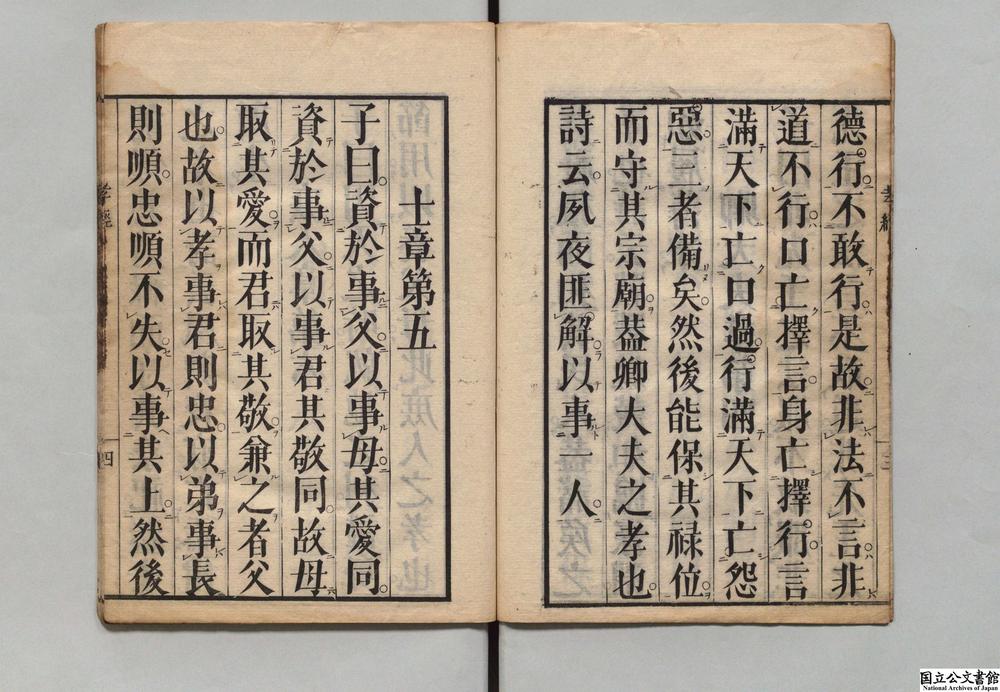 德行不敢行是故非法不言非
道不行口亡擇言身亡擇行言
滿天下亡口過行滿天下亡怨
惡三者備矣然後能保其祿位
而守其宗廟葢卿大夫之孝也
詩云夙夜匪解以事一人
士章第五
子曰資於事父以事母其愛同
資於事父以事君其敬同故母
取其愛而君取其敬兼之者父
也故以孝事君則忠以弟事長
則順忠順不失以事其上然後
孝經
四
国立公文書館
National Archives of Japan